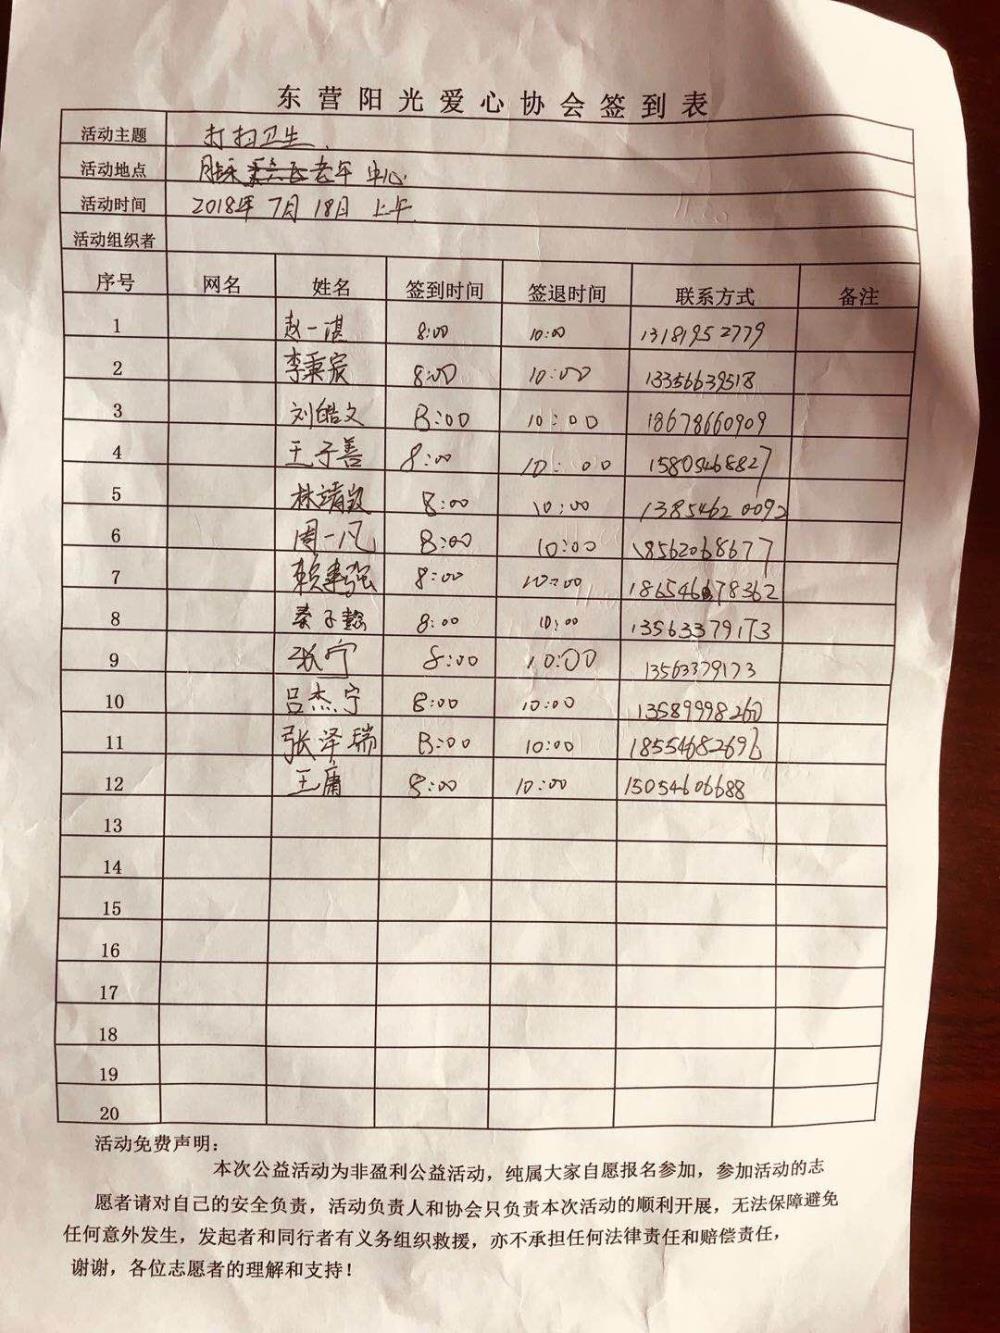 东营阳光爱心协会签到表
活动主题 打扫卫生
活动地点 老年中心
活动时间 2018年7月18日上午
活动组织者
序号 网名 姓名 签到时间 签退时间 联系方式 备注
1 赵一湛 8:00 10:00 13181952779
2 李秉宸 8:00 10:00 13356639518
3 刘皓文 8:00 10:00 18678660909
4 王子善 8:00 10:00 15805468827
5 林靖 8:00 10:00 13854620092
6 周一凡 8:00 10:00 18562068677
7 赖建强 8:00 10:00 186546678362
8 秦子懿 8:00 10:00 13563379173
9 张宁 8:00 10:00 13563379173
10 吕杰宁 8:00 10:00 13589998260
11 张泽瑞 8:00 10:00 18554682696
12 王庸 8:00 10:00 15054606688
13
14
15
16
17
18
19
20
活动免费声明：
本次公益活动为非盈利公益活动，纯属大家自愿报名参加，参加活动的志
愿者请对自己的安全负责，活动负责人和协会只负责本次活动的顺利开展，无法保障避免
任何意外发生，发起者和同行者有义务组织救援，亦不承担任何法律责任和赔偿责任，
谢谢，各位志愿者的理解和支持！